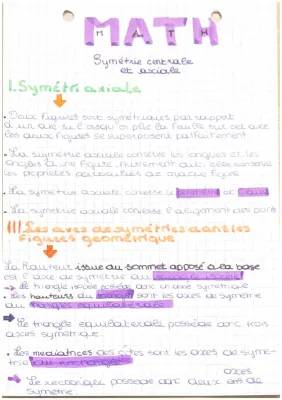 MATH
Symétrie centrale
et axiale
I. Symétri axiale
• Deux figures sont symétriques par rapport
à un axe si lorsqu'on plie la feuille sur cet axe
les deux figures se superposent parfaitement
• La symétrie axiale conserve les longues et les
angles d'une figure, autrement dit, elle conserve
les propriétés de chaque figure
• La symétrie axiale conserve le périmètre et l'aire
• La symétrie axiale conserve l'alignement des points
III Les axes de symétries dans les
figures géométrique
La hauteur issue du sommet opposé à la base
est l'axe de symétrie du triangle isocèle
→ Le triangle isocèle possède un axe symétrique
• Les hauteurs du triangle sont les axes de symétrie
du triangle équilatérale
→ Le triangle équilatérale possède trois
axes symétrique.
• Les mediatrices des côtés sont les axes de symé-
trie du rectangle
axes
→ Le rectangle possède deux de
symetrie